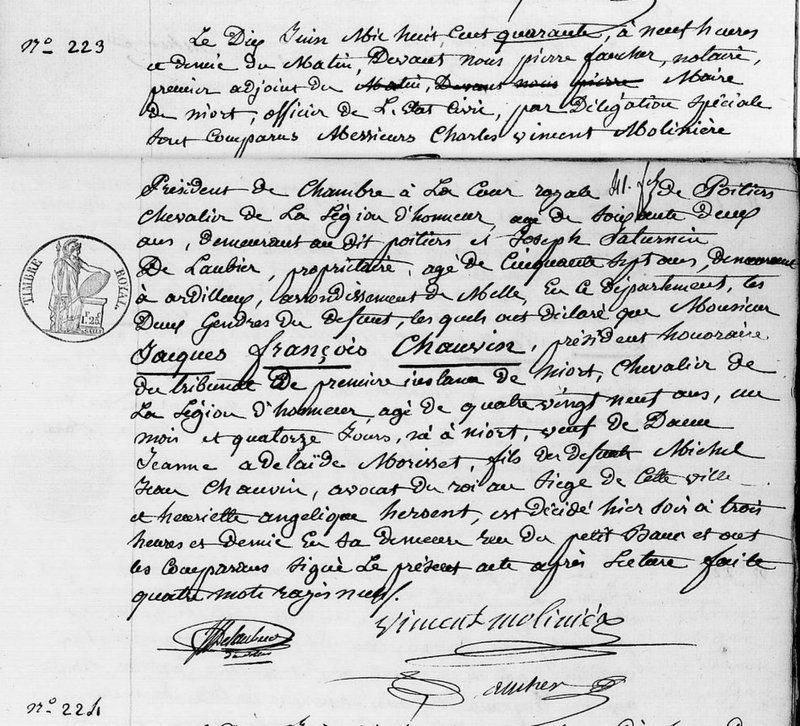 N° 223
Le Dix Juin Mil huit Cent quarante, à neuf heures
et demie du Matin, Devant nous pierre faucher, notaire,
premier adjoint du Matin, Devant nous pierre Maire
de niort, officier de L'Etat Civil, par Délégation Spéciale
sont Comparus Messieurs Charles Vincent Molinière
Président de Chambre à La Cour royale de Poitiers
Chevalier de La Légion d'honneur, agé de soixante Deux
ans, demeurant au dit poitiers et Joseph Saturnin
De Laubier, propriétaire, agé de Cinquante sept ans, demeurant
à ardilleux, arrondissement de Melle, En ce Département, les
Deux Gendres du défunt, les quels ont déclaré que Monsieur
Jacques françois Chauvin, président honoraire
du tribunal De première instance de niort, Chevalier de
La Légion d'honneur, agé de quatre vingt neuf ans, un
mois et quatorze Jours, né à niort, veuf de Dame
Jeanne adelaïde Morisset, fils des défunts Michel
Jean Chauvin, avocat du roi au Siège de Cette ville
et henriette angelique hersent, est décédé hier soir à trois
heures et Demie En sa demeure rue du petit Banc et ont
les Comparans signé Le présent acte après Lecture faite
quatre mots rayés nuls.
Vincent Molinière
TIMBRE ROYAL
F 1.25
faucher
N° 224